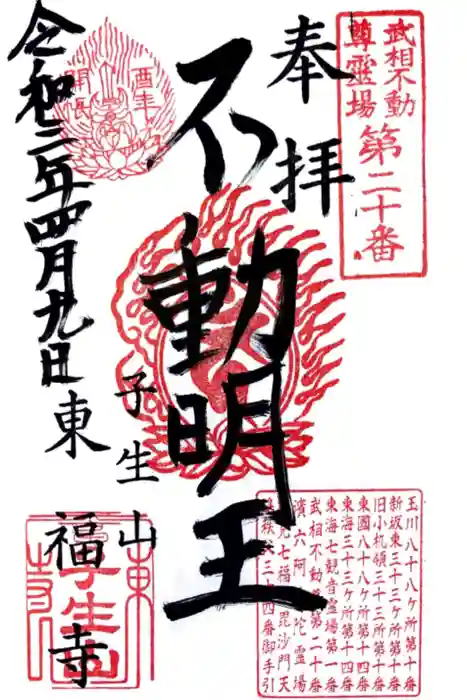 武相不動
尊霊場
第二十番
奉拝
不動明王
子生山
東福寺
令和三年四月九日
酉年
開帳
玉川八十八ケ所第十番
新坂東三十三ケ所第十番
旧小机領三十三所第十番
東國八十八ケ所第十四番
東海三十三ケ所第十四番
東海七観音霊場第一番
武相不動
第二十番
六阿
陀霊場
七福
毘沙門天
四番御手引